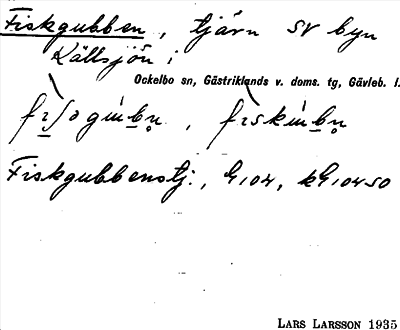 Fiskgubben, tjärn SV byn
Källsjön i
Ockelbo sn, Gästriklands v. doms. tg, Gävleb. l.
Fiskgubbenstj., G104, kG104SO
LARS LARSSON 1935